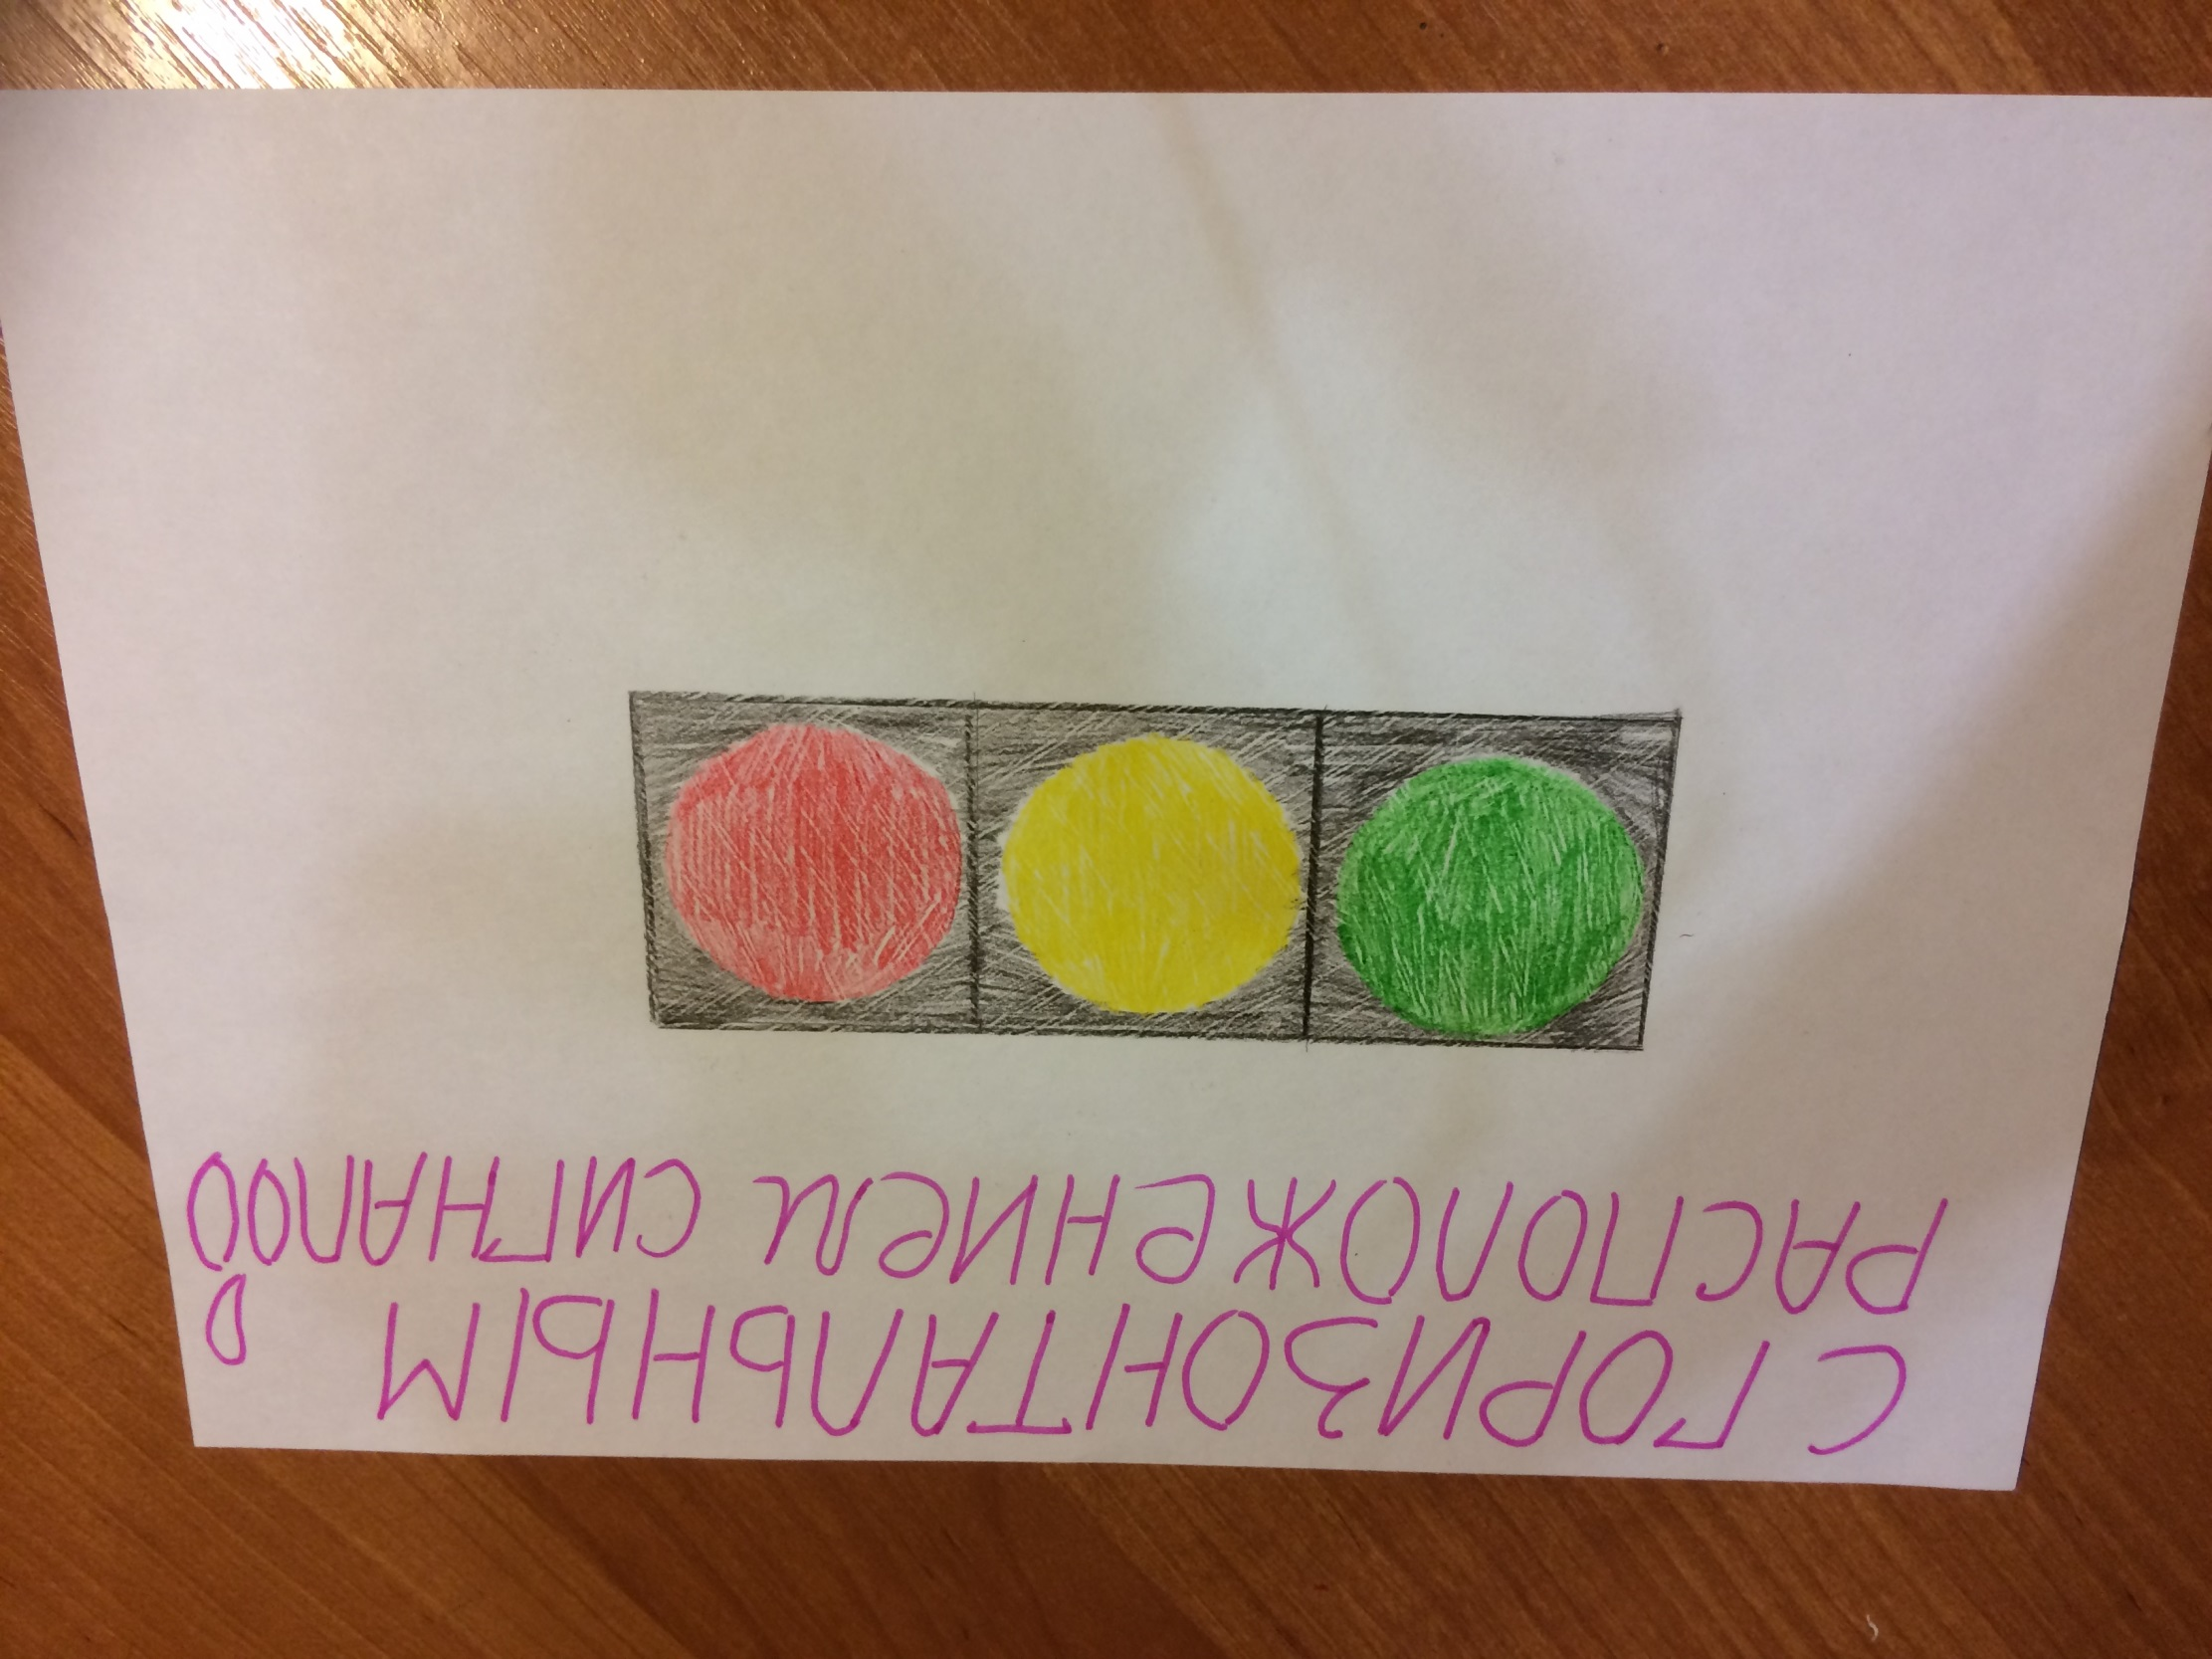 С ГОРИЗОНТАЛЬНЫМ
РАСПОЛОЖЕНИЕМ СИГНАЛОВ